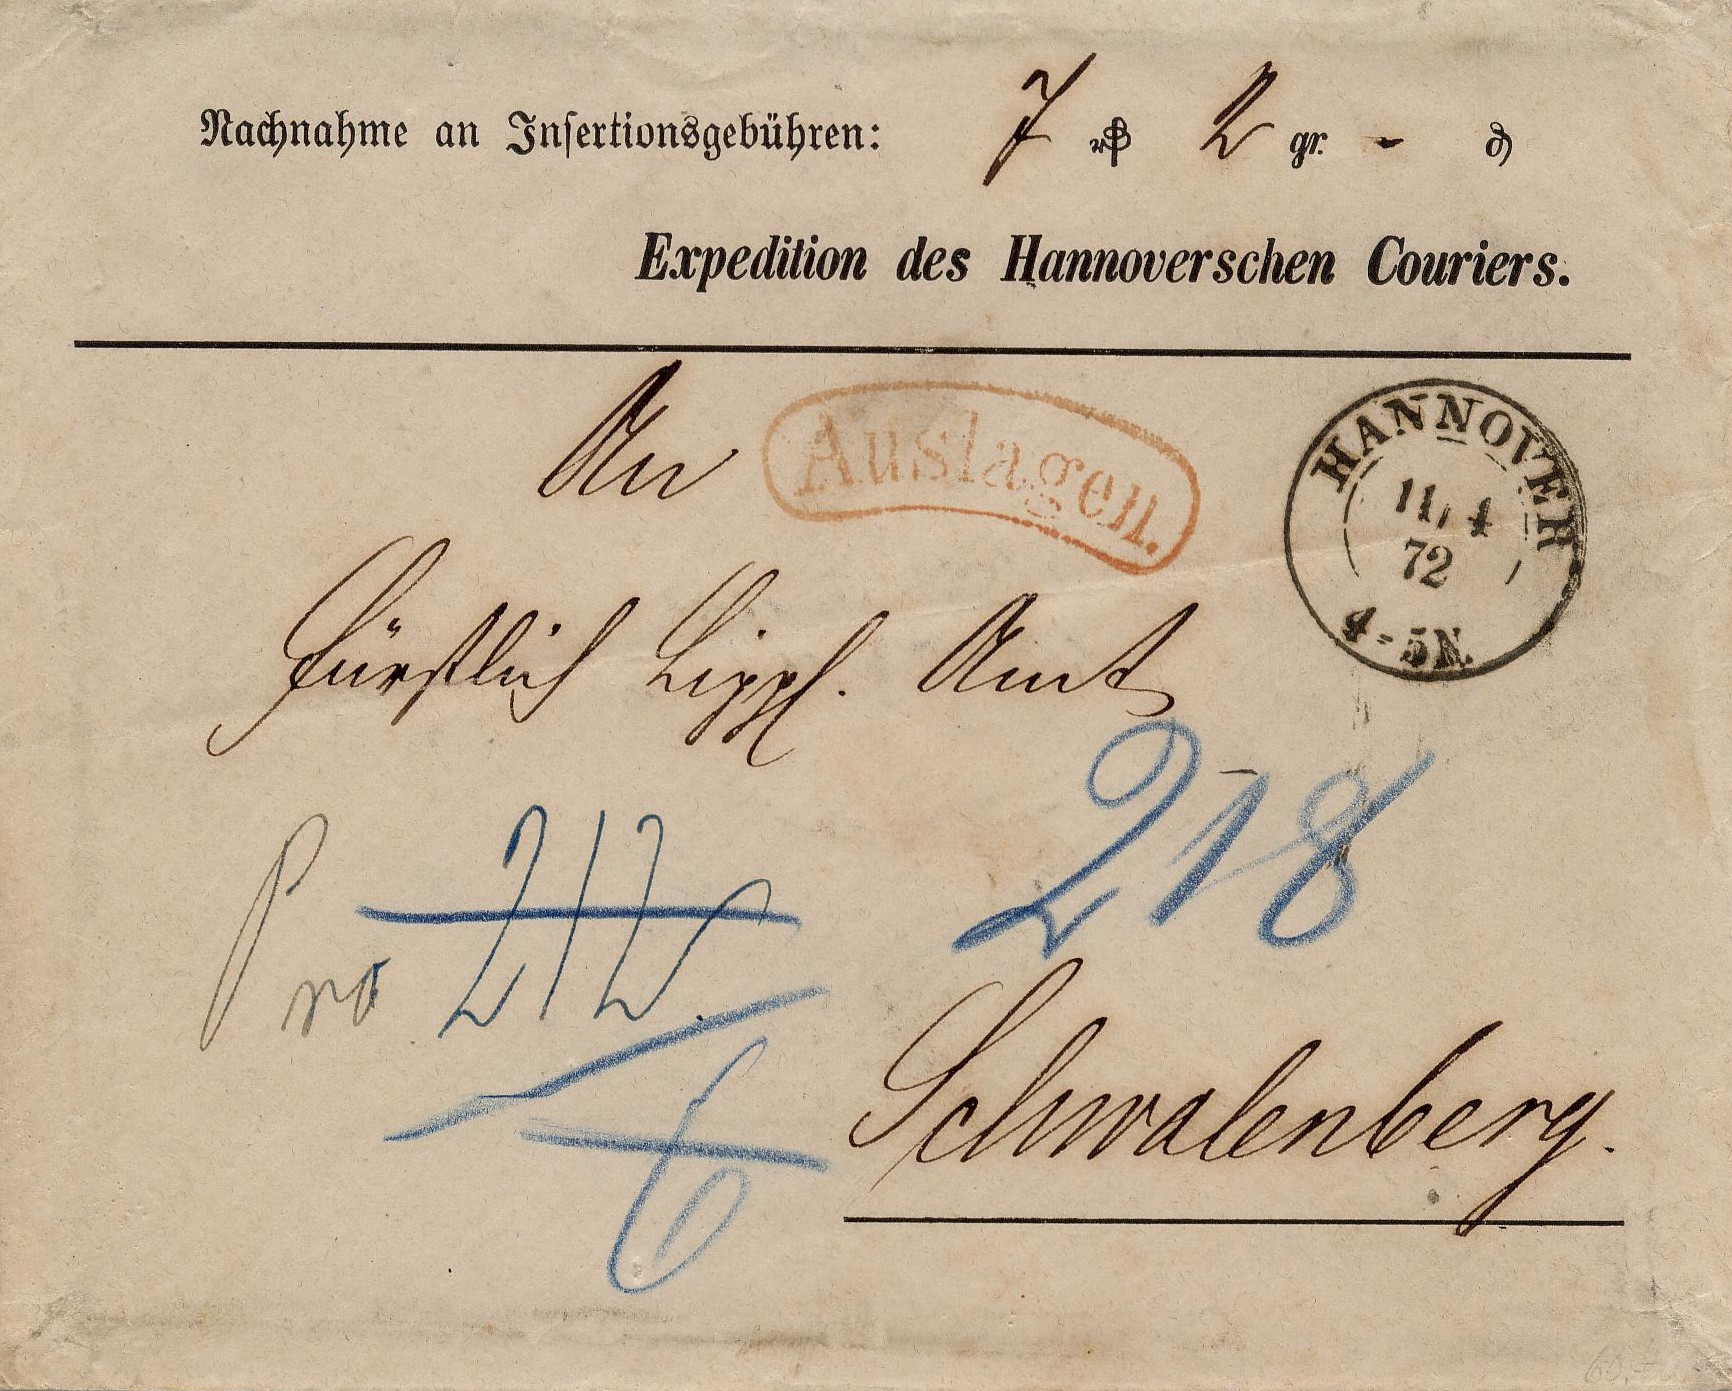 Nachnahme an Insertionsgebühren: 7 ₰ 2 gr. - ₰
Expedition des Hannoverschen Couriers.
An
Auslagen.
HANNOVER
11/4
72
4-5N.
Fürstlich Lippl. Amt
218
P no 212.
6
Schwalenberg.